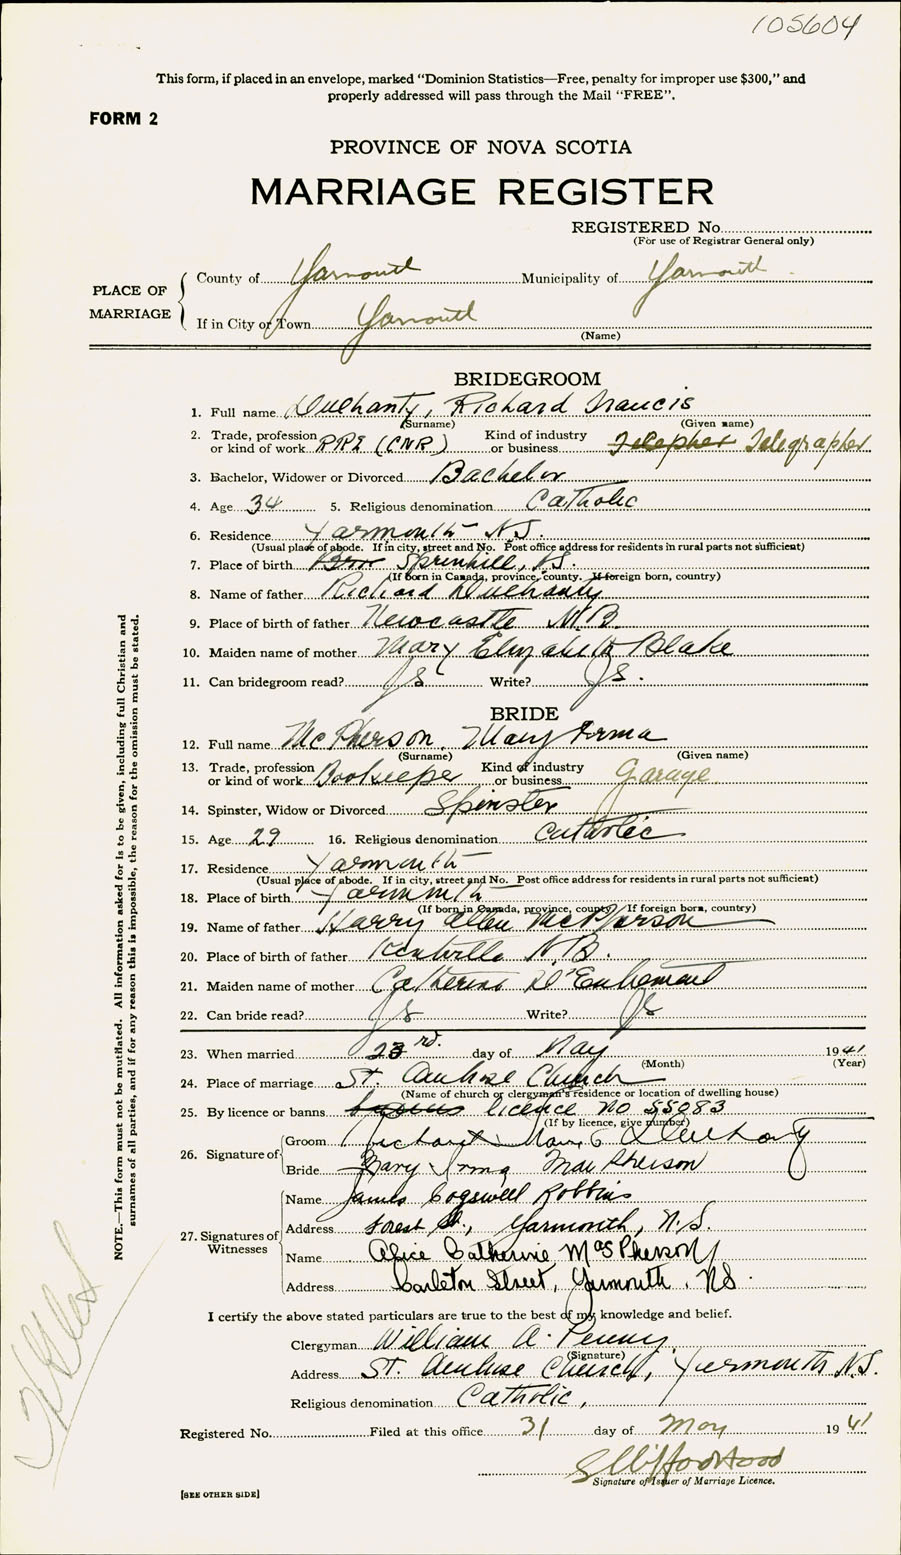 105604
This form, if placed in an envelope, marked "Dominion Statistics—Free, penalty for improper use $300," and
properly addressed will pass through the Mail "FREE".
FORM 2
PROVINCE OF NOVA SCOTIA
MARRIAGE REGISTER
REGISTERED No.
(For use of Registrar General only)
PLACE OF MARRIAGE
County of Yarmouth Municipality of Yarmouth
If in City or Town Yarmouth
(Name)
BRIDEGROOM
1. Full name Dulhanty, Richard Francis
(Surname) (Given name)
2. Trade, profession or kind of work (CNR) Kind of industry or business Telegrapher
3. Bachelor, Widower or Divorced Bachelor
4. Age 34 5. Religious denomination Catholic
6. Residence Yarmouth N.S.
(Usual place of abode. If in city, street and No. Post office address for residents in rural parts not sufficient)
7. Place of birth Sprinhill, N.S.
(If born in Canada, province, county. If foreign born, country)
8. Name of father Richard Dulhanty
9. Place of birth of father Newcastle N.B.
10. Maiden name of mother Mary Elizabeth Blake
11. Can bridegroom read? Write?
BRIDE
12. Full name McPherson, Mary Irma
(Surname) (Given name)
13. Trade, profession or kind of work Bookeeper Kind of industry or business Garage
14. Spinster, Widow or Divorced Spinster
15. Age 29 16. Religious denomination Catholic
17. Residence Yarmouth
(Usual place of abode. If in city, street and No. Post office address for residents in rural parts not sufficient)
18. Place of birth Yarmouth
(If born in Canada, province, county If foreign born, country)
19. Name of father Harry Allen McPherson
20. Place of birth of father N.B.
21. Maiden name of mother Catherine D'Entremont
22. Can bride read? Write?
23. When married 23rd. day of May 1941
(Month) (Year)
24. Place of marriage St. Ambrose Church
(Name of church or clergyman's residence or location of dwelling house)
25. By licence or banns licence no 55083
(If by licence, give number)
26. Signature of
Groom Richard Dulhanty
Bride Mary Irma MacPherson
27. Signatures of Witnesses
Name James Cogswell Robbins
Address Forest St., Yarmouth, N.S.
Name Alice Catherine MacPherson
Address Carleton Street, Yarmouth, NS.
I certify the above stated particulars are true to the best of my knowledge and belief.
Clergyman William A. Penny
(Signature)
Address St. Ambrose Church, Yarmouth N.S.
Religious denomination Catholic,
Registered No. Filed at this office 31 day of May 1941
Signature of Issuer of Marriage Licence.
[SEE OTHER SIDE]
NOTE.—This form must not be mutilated. All information asked for is to be given, including full Christian and
surnames of all parties, and if for any reason this is impossible, the reason for the omission must be stated.